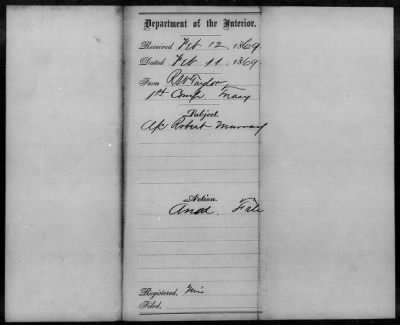 Department of the Interior.
Received Feb 12, 1869.
Dated Feb 11, 1869.
From R W Taylor
1st Comp. Treasy
Subject.
a/c Robert Murray
Action.
File
Registered.
Filed.